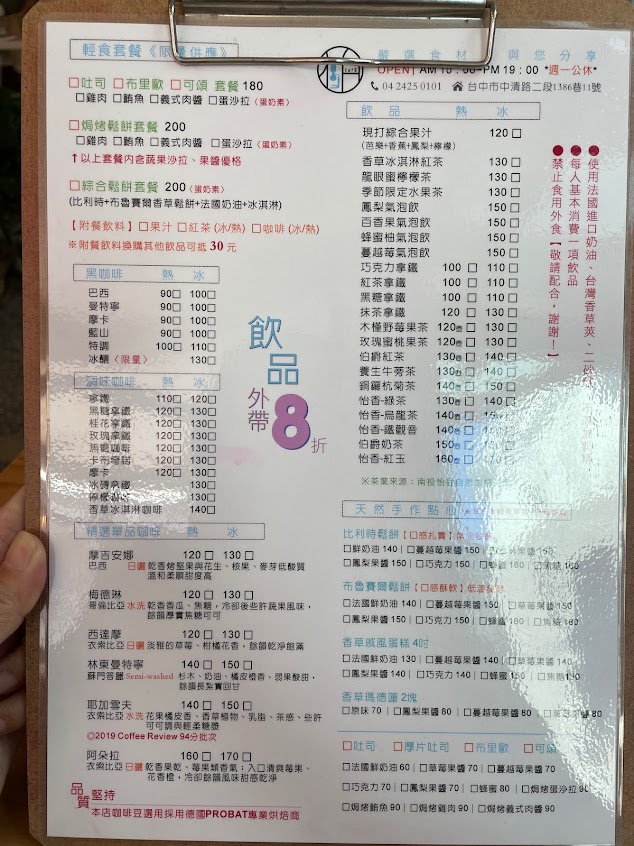 輕食套餐《限量供應》
嚴選食材 與您分享
OPEN | AM 10:00~PM 19:00 *週一公休*
04 2425 0101 台中市中清路二段1386巷11號
□吐司 □布里歐 □可頌 套餐 180
□雞肉 □鮪魚 □義式肉醬 □蛋沙拉(蛋奶素)
□焗烤鬆餅套餐 200
□雞肉 □鮪魚 □義式肉醬 □蛋沙拉(蛋奶素)
↑以上套餐內含蔬果沙拉、果醬優格
□綜合鬆餅套餐 200 (蛋奶素)
(比利時+布魯賽爾香草鬆餅+法國奶油+冰淇淋)
【附餐飲料】□果汁 □紅茶(冰/熱) □咖啡(冰/熱)
※附餐飲料換購其他飲品可抵 30 元
黑咖啡 熱 冰
巴西 90□ 100□
曼特寧 90□ 100□
摩卡 90□ 100□
藍山 90□ 100□
特調 100□ 110□
冰釀〈限量〉 130□
調味咖啡 熱 冰
拿鐵 110□ 120□
黑糖拿鐵 120□ 130□
桂花拿鐵 120□ 130□
玫瑰拿鐵 120□ 130□
焦糖咖啡 120□ 130□
卡布奇諾 120□ 130□
摩卡 120□ 130□
冰磚拿鐵 130□
檸檬咖啡 130□
香草冰淇淋咖啡 140□
精選單品咖啡 熱 冰
摩吉安娜 120□ 130□
巴西 日曬 乾香烤堅果與花生、核果、麥芽低酸質
溫和柔順甜度高
梅德琳 120□ 130□
哥倫比亞 水洗 乾香香瓜、焦糖，冷卻後些許蔬果風味，
餘韻厚實焦糖可可
西達摩 120□ 130□
衣索比亞 日曬 淡雅的草莓、柑橘花香，餘韻乾淨飽滿
林東曼特寧 140□ 150□
蘇門答臘 Semi-washed 杉木、奶油、橘皮橙香，弱果酸甜，
餘韻長紮實回甘
耶加雪夫 140□ 150□
衣索比亞 水洗 花果橘皮香、香草植物、乳脂、茶感、些許
可可調與輕柔糖漿
◎2019 Coffee Review 94分批次
阿朵拉 160□ 170□
衣索比亞 日曬 乾香果乾、莓果類香氣，入口清爽莓果、
花香橙，冷卻餘韻風味甜感乾淨
品質堅持
本店咖啡豆選用採用德國PROBAT專業烘焙商
飲品外帶8折
飲品 熱 冰
現打綜合果汁 120□
(芭樂+香蕉+鳳梨+檸檬)
香草冰淇淋紅茶 130□
龍眼蜜檸檬茶 130□
季節限定水果茶 130□
鳳梨氣泡飲 150□
百香果氣泡飲 150□
蜂蜜柚氣泡飲 150□
蔓越莓氣泡飲 150□
巧克力拿鐵 100□ 110□
紅茶拿鐵 100□ 110□
黑糖拿鐵 100□ 110□
抹茶拿鐵 120□ 130□
木槿野莓果茶 120壺□ 130□
玫瑰蜜桃果茶 120壺□ 130□
伯爵紅茶 130壺□ 140□
養生牛蒡茶 130壺□ 140□
銅鑼杭菊茶 130壺□ 140□
怡香-綠茶 130壺□ 140□
怡香-烏龍茶 140壺□
怡香-鐵觀音 140壺□
伯爵奶茶 150壺□
怡香-紅玉 160壺□
※茶葉來源：南投
●使用法國進口奶油、台灣香草莢、二砂
●每人基本消費一項飲品
●禁止食用外食【敬請配合，謝謝！】
天然手作點心
比利時鬆餅【口感扎實】
□鮮奶油 140 | □蔓越莓果醬 150 | 150
□鳳梨果醬 150 | □巧克力 150 | □蜂蜜 160 | □焦糖 160
布魯賽爾鬆餅【口感酥軟】
□法國鮮奶油 140 | □蔓越莓果醬 150 | □草莓果醬 150
□鳳梨果醬 150 | □巧克力 150 | □蜂蜜 160 | □焦糖 160
香草戚風蛋糕 4吋
□法國鮮奶油 130 | □蔓越莓果醬 140 | □草莓果醬 140
□鳳梨果醬 140 | □巧克力 140 | □蜂蜜 150 | □焦糖 150
香草瑪德蓮 2塊
□原味 70 | □鳳梨果醬 80 | □蔓越莓果醬 80 | □草莓果醬 80
□吐司 □厚片吐司 □布里歐 □可頌
□法國鮮奶油 60 | □草莓果醬 70 | □蔓越莓果醬 70
□巧克力 70 | □鳳梨果醬 70 | □蜂蜜 80 | □焗烤蛋沙拉 90
□焗烤鮪魚 90 | □焗烤雞肉 90 | □焗烤義式肉醬 90